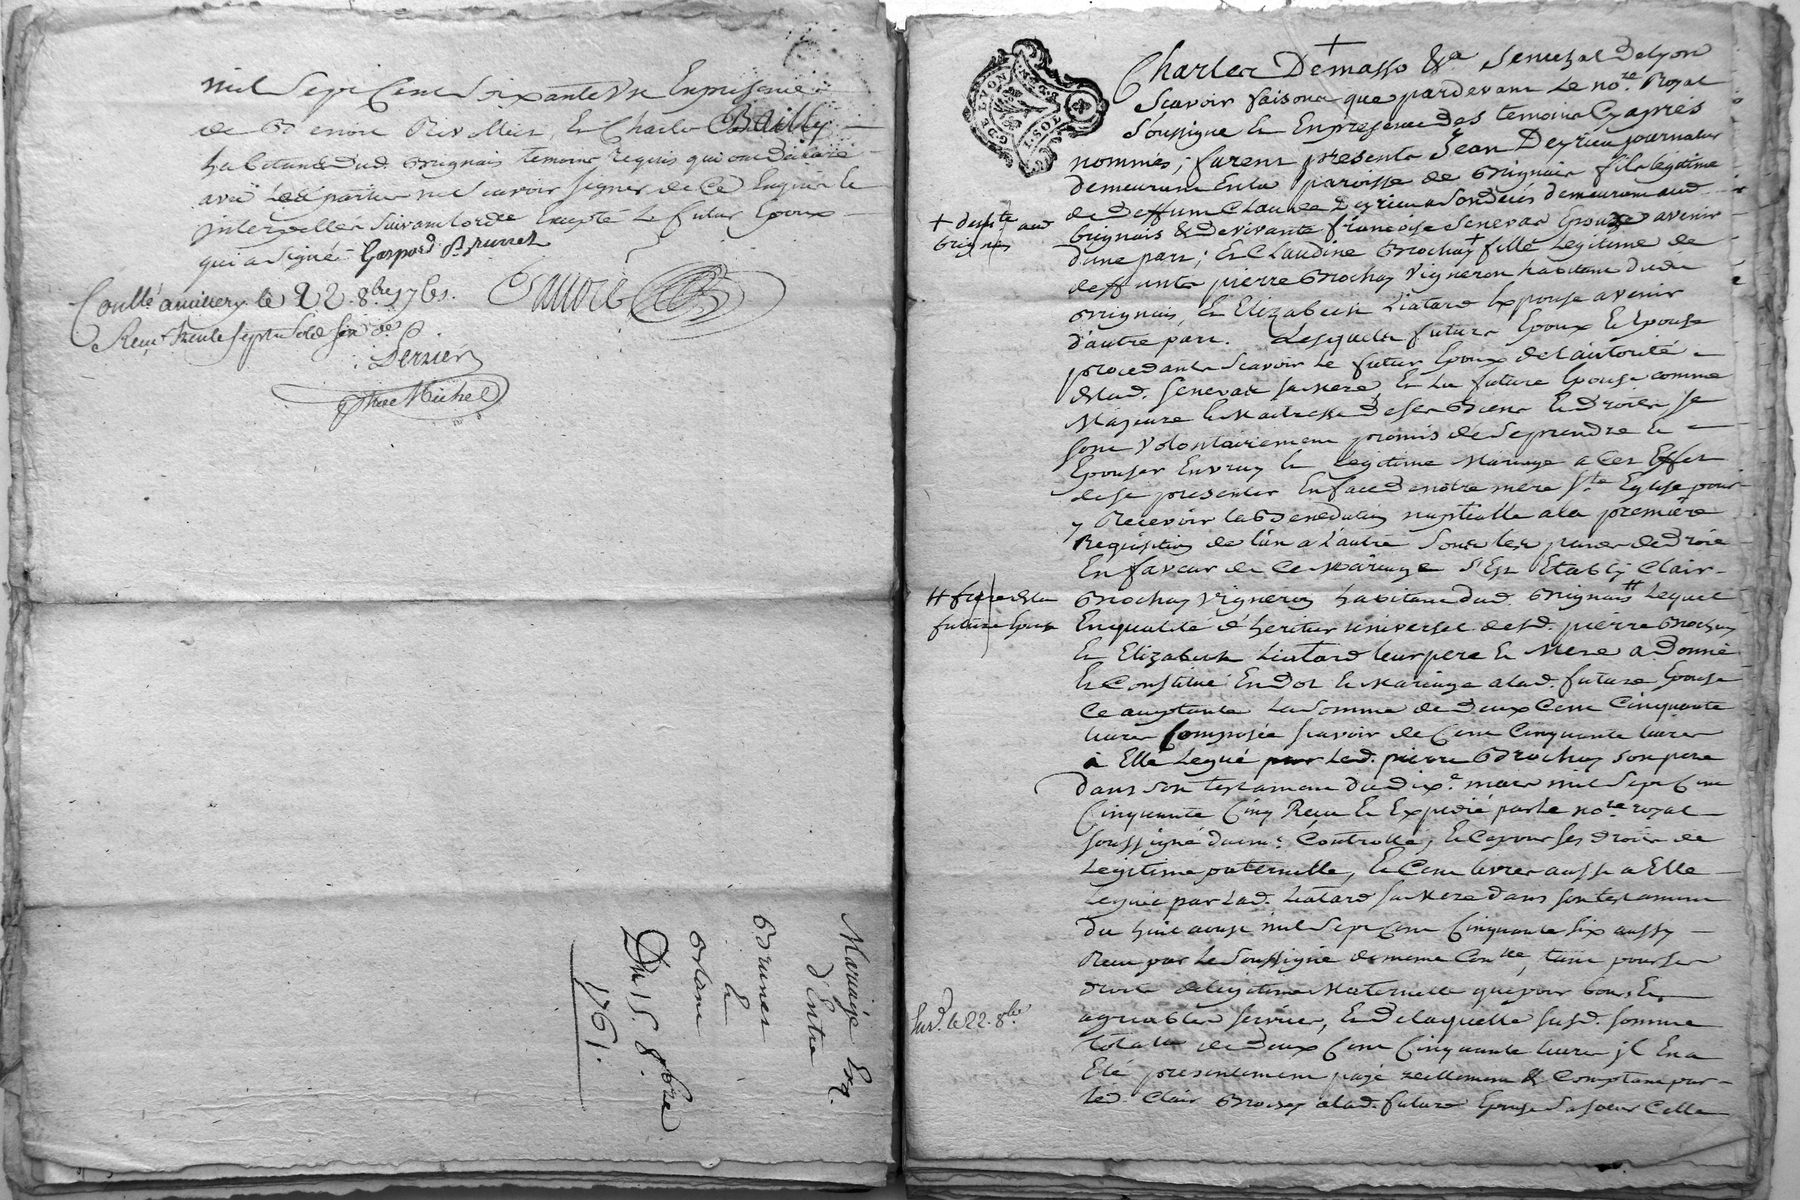 mil Sept Cent Soixante Un En presence
de Benoit Rivollier, et Charles Bailly
habitants dud. Brignais temoins requis qui ont declaré
avec Les parties ne Scavoir Signer de Ce Enquis et
interpellés Suivant Lordce Excepté Le futur Epoux
qui a Signé
Coullé a millery le 22. 8bre 1761.
Reçu trente Sept Sols Six de
Mariage En
d'Entre
Brunet
&
orlane
Du 15. 8bre
1761.
GDE LYON
Charles Demasso &a Senechal de Lyon
Scavoir faisons que pardevant Le nore Royal
Soussigné & En presence des temoins Cy apres
nommés, furent presents Jean Deyrieu journalier
demeurant En la paroisse de Brignais fils legitime
de deffunt Claude Deyrieu demeurant aud.
+ aud
brignais
brignais & de vivante françoise Seneval Epoux avenir
d'une part; & Claudine Brochay + fille Legitime de
deffunts pierre Brochay Vigneron habitant dudt
Brignais, & Elizabeth Liatard Expouse avenir
d'autre part. Lesquels futurs Epoux & Epouse
procedants Scavoir Le futur Epoux de L'autorité
de lad. Seneval sa mere & La future Epouse comme
Majeure & Maitresse de Ses Biens & Droits, se
sont Volontairement promis de Se prendre &
Epouser En vray & Legitime Mariage a Cet Effet
de se presenter En face de notre mere Ste Eglise pour
y Recevoir la Benediction nuptialle a la premiere
Requisition de l'un a L'autre Sous les peines de Droit
En faveur de Ce Mariage S'Est Etably Clair
# frere de la
future Epouse
Brochay Vigneron habitant dud. Brignais # Lequel
En qualité d'heritier universel desd. pierre Brochay
& Elizabeth Liatard leur pere & Mere a Donné
& Constitué En Dot & Mariage a lad. future Epouse
Ce acceptante La Somme de deux Cent Cinquante
livres Composée Scavoir de Cent Cinquante livres
à Elle Legué par Led. pierre Brochay son pere
dans Son testament du dix mars mil Sept Cent
Cinquante Cinq Recu & Expedié par Le nore royal
soussigné Controllé, & Ce pour Ses droits de
Legitime paternelle, & Cent livres aussi a Elle
Leguée par Lad. Liatard sa Mere dans son testament
du huit aoust mil Sept Cent Cinquante Six aussy
Recu par Le Soussigné de meme Conlé, tant pour Ses
droits de legitime Maternelle que pour bons &
le 22. 8bre
agreables Services, & de laquelle susd. Somme
totalle de deux Cent Cinquante livres jl En a
Eté presentement payé reellement & Comptant par
led. Clair Brochay a lad. future Epouse Sa Soeur Celle